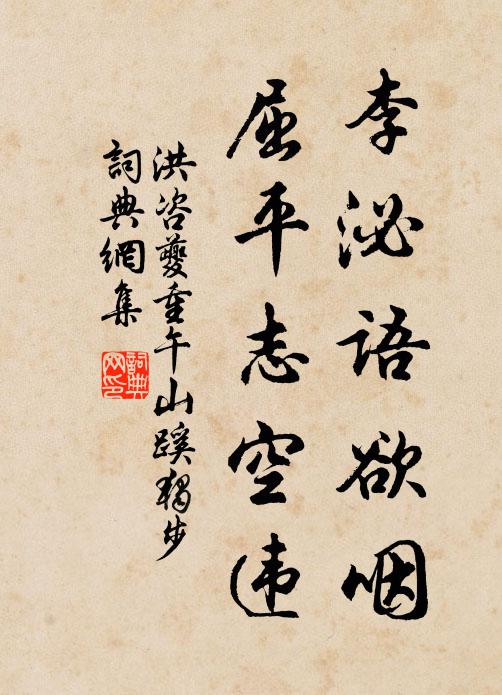 李泌語欲咽
屈平志空违
洪咨夔重午山蹊獨步
詞典網集
詞典網印